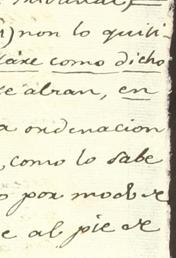 ) non lo quiti
como dicho
abran, en
a ordenacion
, como lo sabe
por modo de
e al pie de